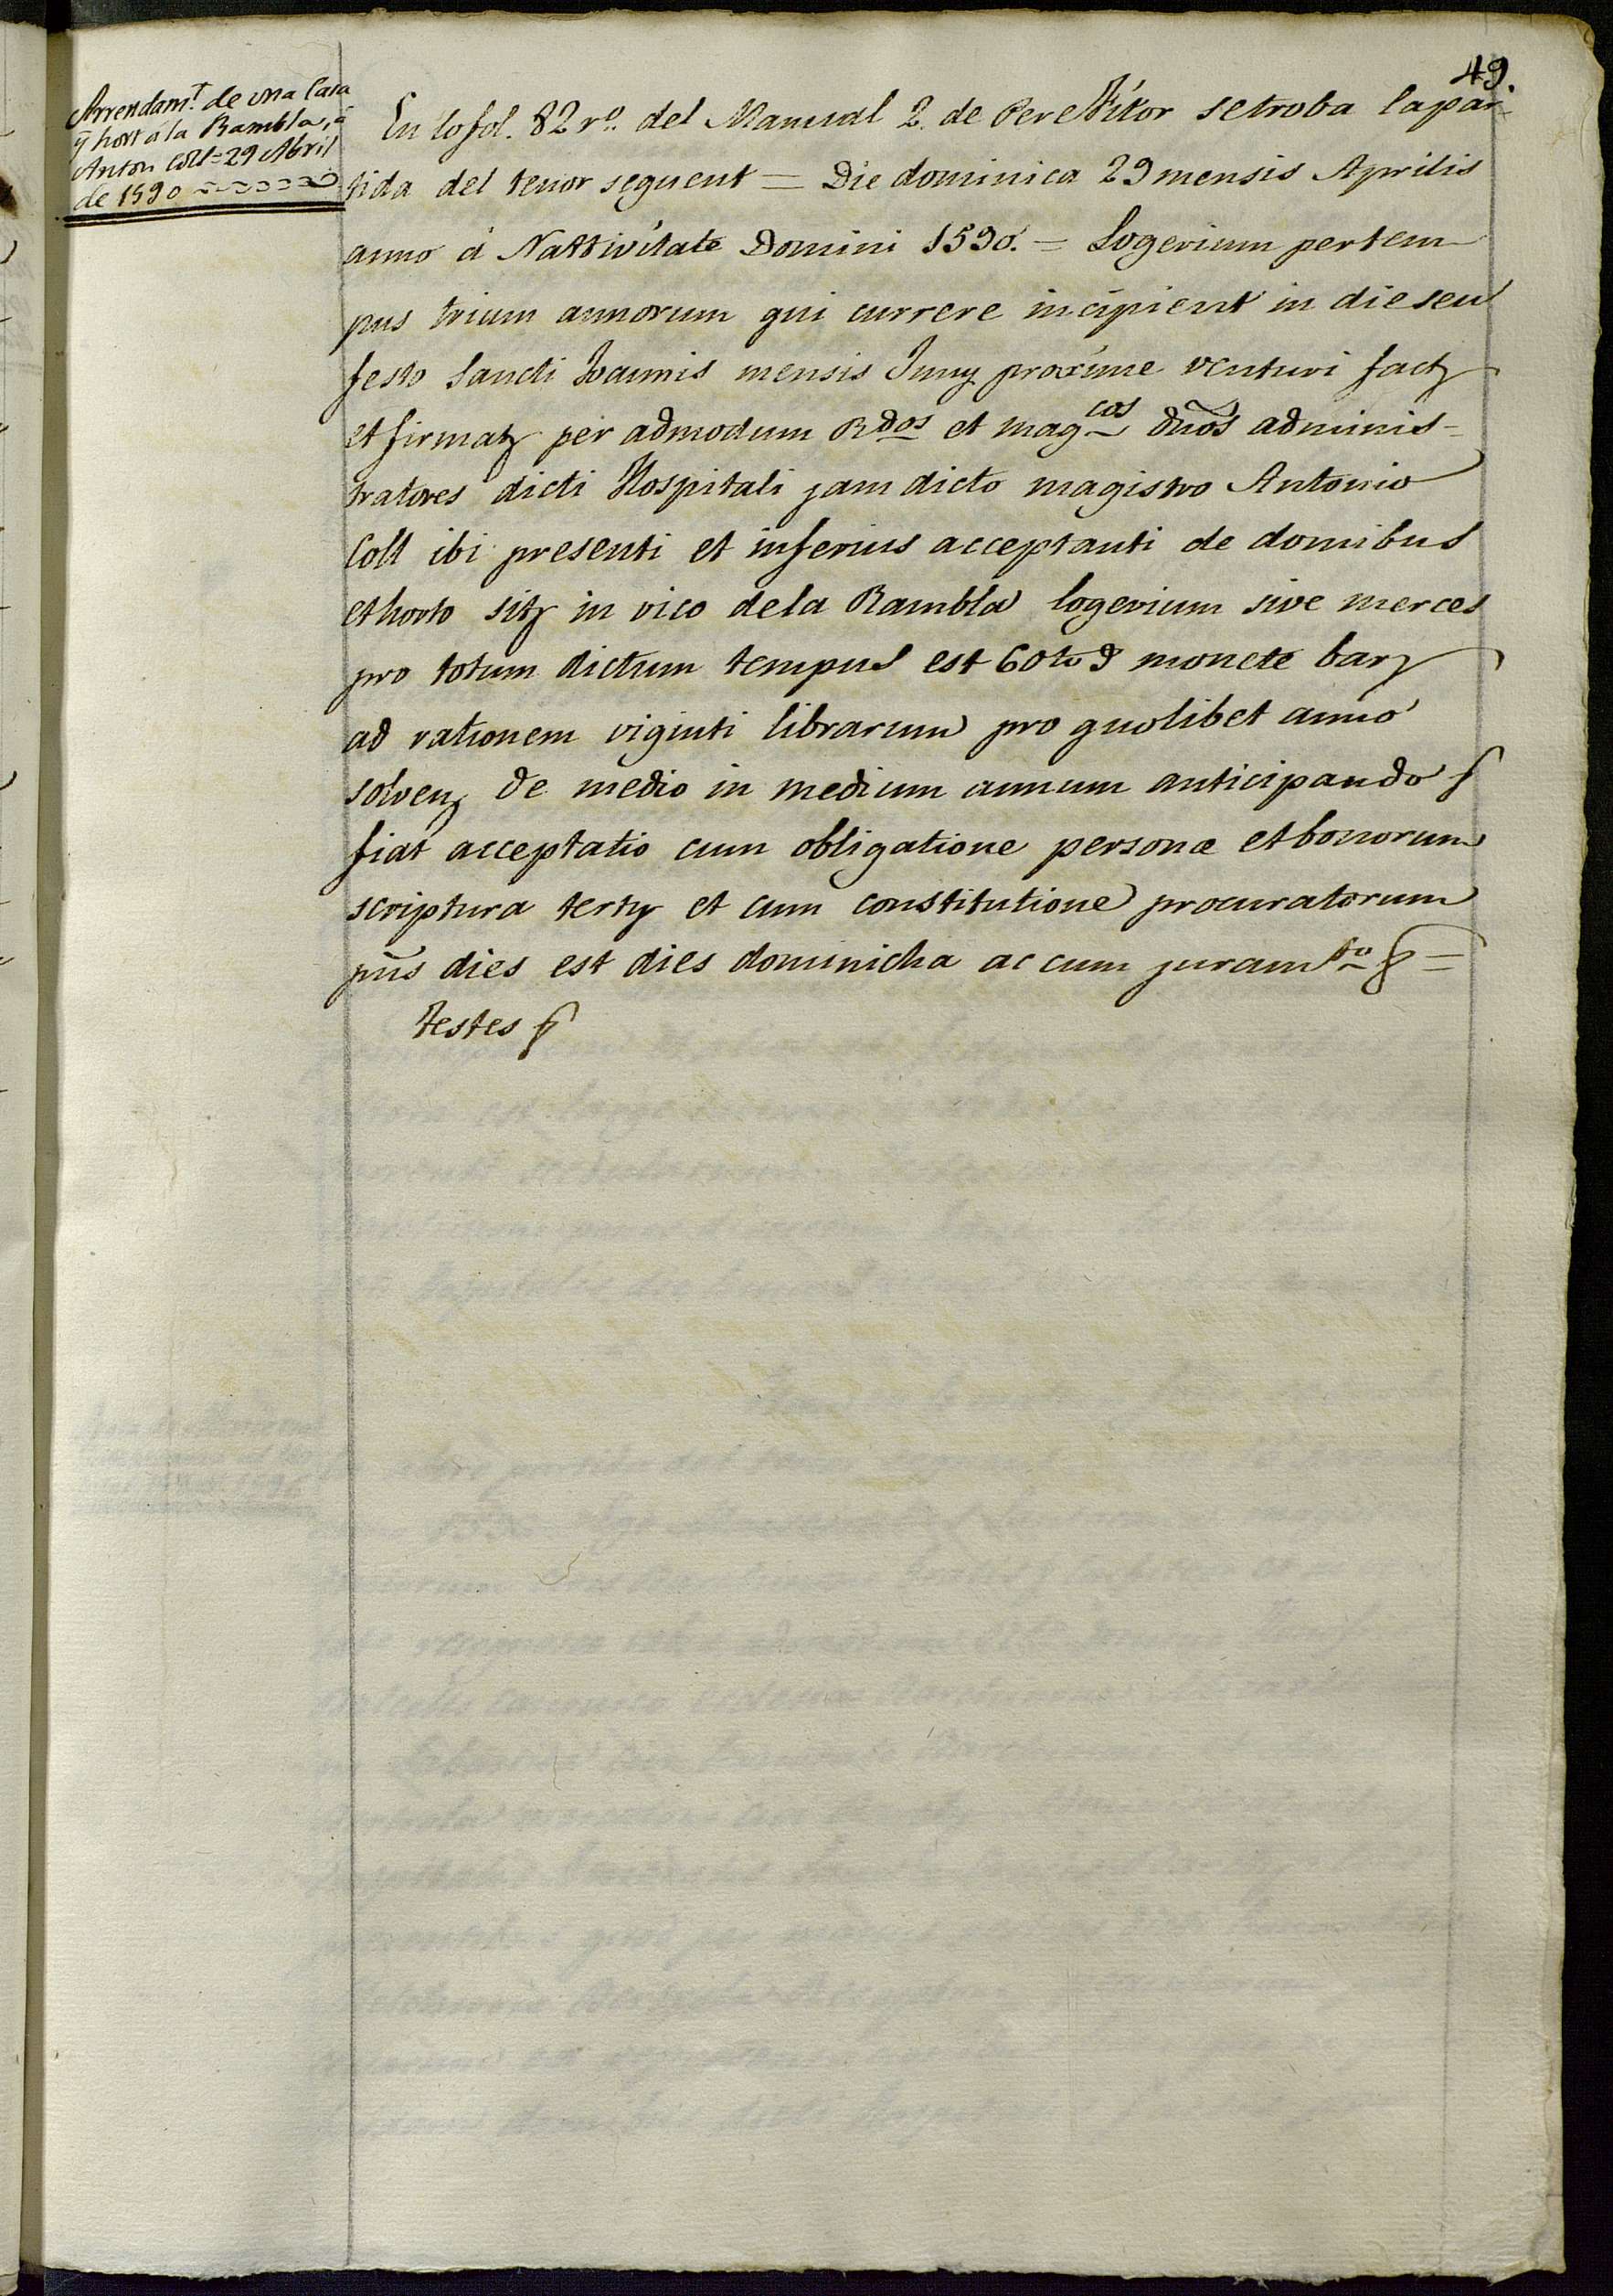 49.
Arrendam.t de una Casa
ÿ hort á la Rambla, á
Anton Coll = 29 Abril
de 1590
En lo fol. 82 r.o del Manual 2. de Pere Fitor se troba la par-
tida del tenor seguent = Die dominica 29 mensis Aprilis
anno á Nattivitate Domini 1590. = Logerium per tem
pus trium annorum qui currere incipient in die seu
festo Sancti Joannis mensis Juny proxime venturi fact
et firmat per admodum Rdos et magcos dños adminis-
tratores dicti Hospitali jam dicto magistro Antonio
Coll ibi presenti et inferius acceptanti de domibus
et horto sit in vico de la Rambla logerium sive merces
pro totum dictum tempus est 60 monete bar
ad rationem viginti librarum pro quolibet anno
solven de medio in medium annum anticipando
fiat acceptatio cum obligatione personæ et bonorum
scriptura terty et cum constitutione procuratorum
pñs dies est dies dominicha ac cum juramto =
testes